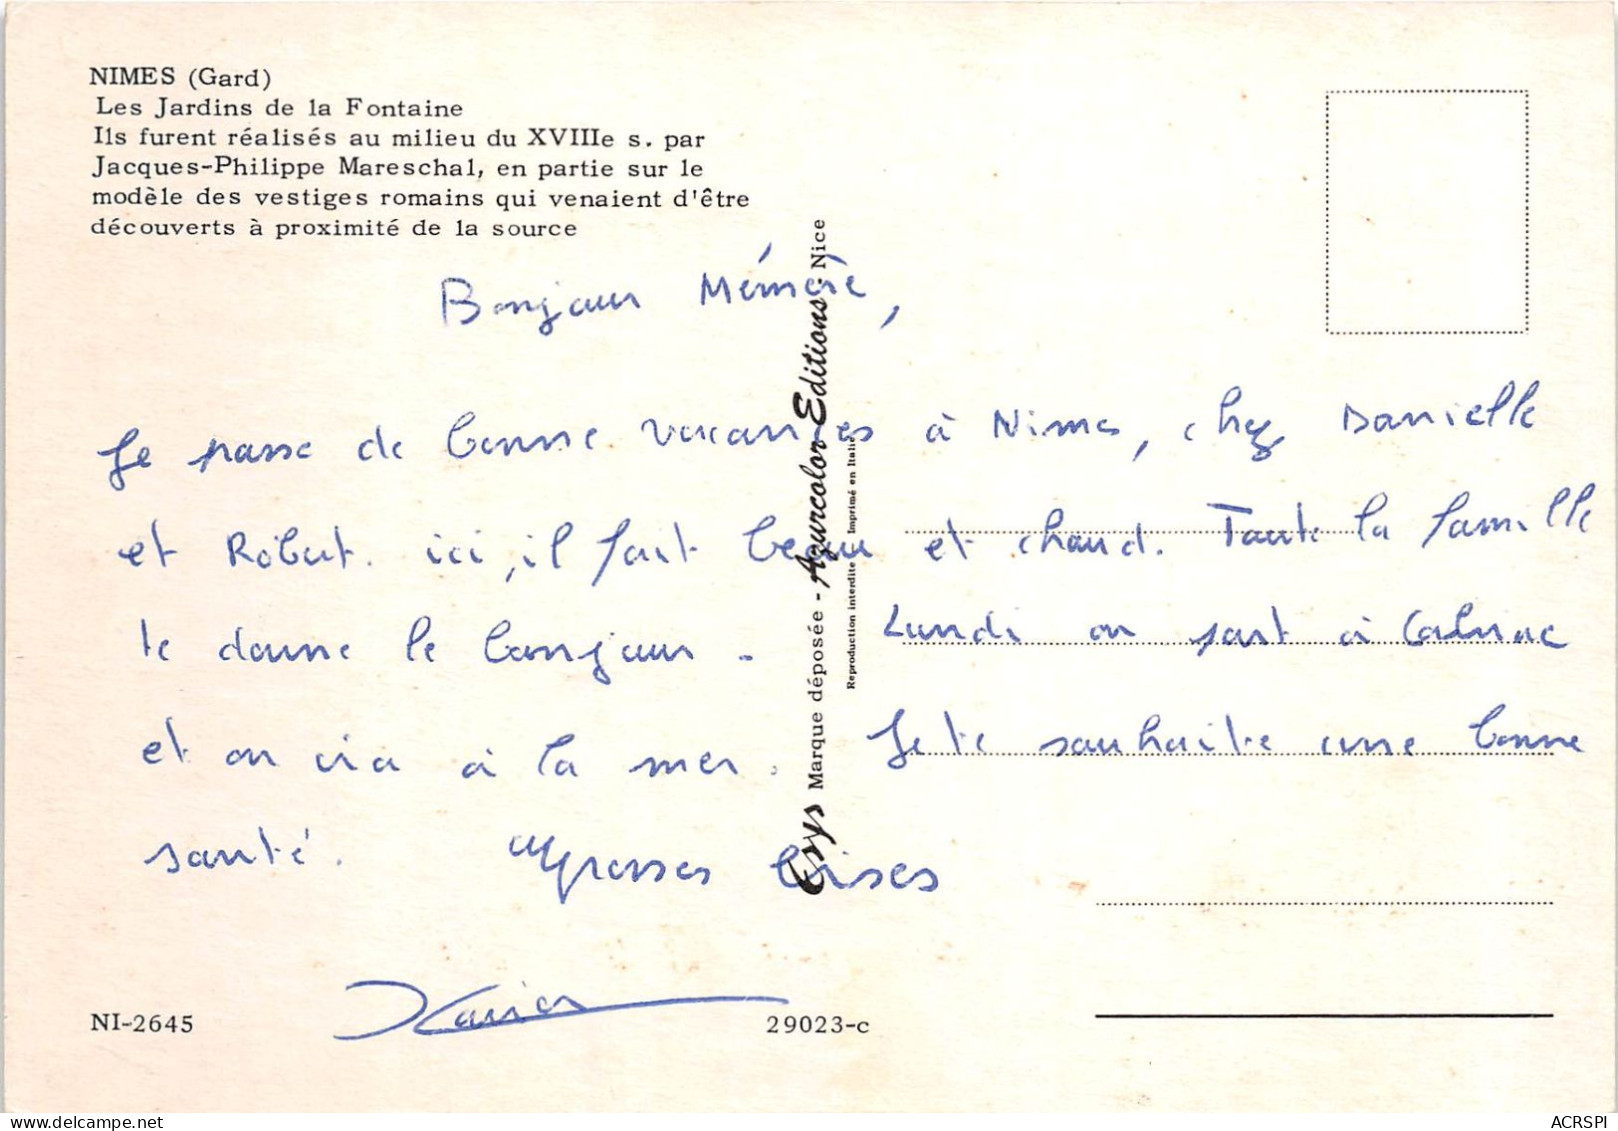 NIMES (Gard)
Les Jardins de la Fontaine
Ils furent réalisés au milieu du XVIIIe s. par
Jacques-Philippe Mareschal, en partie sur le
modèle des vestiges romains qui venaient d'être
découverts à proximité de la source
Bonjour Mémère,
Je passe de bonne vacances à Nimes, chez Danielle
et Robert. ici, il fait beau et chaud. Toute la famille
te donne le bonjour. Lundi on part à
et on ira à la mer. Je te souhaite une bonne
santé. grosses bises
Xavier
NI-2645
29023-c
Marque déposée - Azurcolor Editions - Nice
Reproduction interdite Imprimé en Italie
ACRSPI